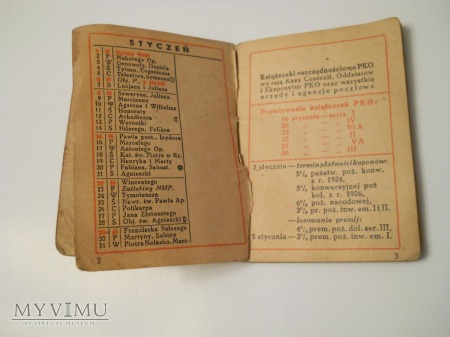 STYCZEŃ
2 P Makarego Op.
3 W Genowefy, Daniela
4 Ś Tytusa, Eugeniusza
5 C Telesfora, Szymona
6 P Obj. P.
7 S Lucjana i Juliana
8 N Seweryna, Juliana
9 P Marcjanny
10 W Agatona i Wilhelma
11 Ś Honoraty
12 C Arkadiusza
13 P Weroniki
14 S Hilarego, Feliksa
15 N Pawła pust., Izydora
16 P Marcelego
17 W Antoniego Op.
18 Ś Kat. św. Piotra w Rz.
19 C Henryka i Marty
20 P Fabiana, Sebast.
21 S Agnieszki
22 N Wincentego
23 P Zaślubiny NMP.
24 W Tymoteusza
25 Ś Nawr. św. Pawła Ap.
26 C Polikarpa
27 P Jana Złotoustego
28 S Obj. św. Agnieszki
29 N Franciszka Salezego
30 P Martyny, Sabiny
31 W Piotra Nolasko, Marc.
2
Książeczki oszczędnościowe PKO
wydają Kasy Centrali, Oddziałów
i Ekspozytur PKO oraz wszystkie
urzędy i agencje pocztowe
Premiowanie książeczek PKO:
stycznia — serja I
IV
VI A
II
V A
III
2 stycznia — termin płatności kuponów:
5% państw. poż. konw.
z r. 1924,
5% konwersyjnej poż
kol. z r. 1926,
6% poż. narodowej,
3% pr. poż. inw. em. I i II.
— losowanie premij:
4% prem. poż. dol. ser. III,
5 stycznia — 3% prem. poż. inw. em. I.
3
MYVIMU
MY VIRTUAL MUSEUM